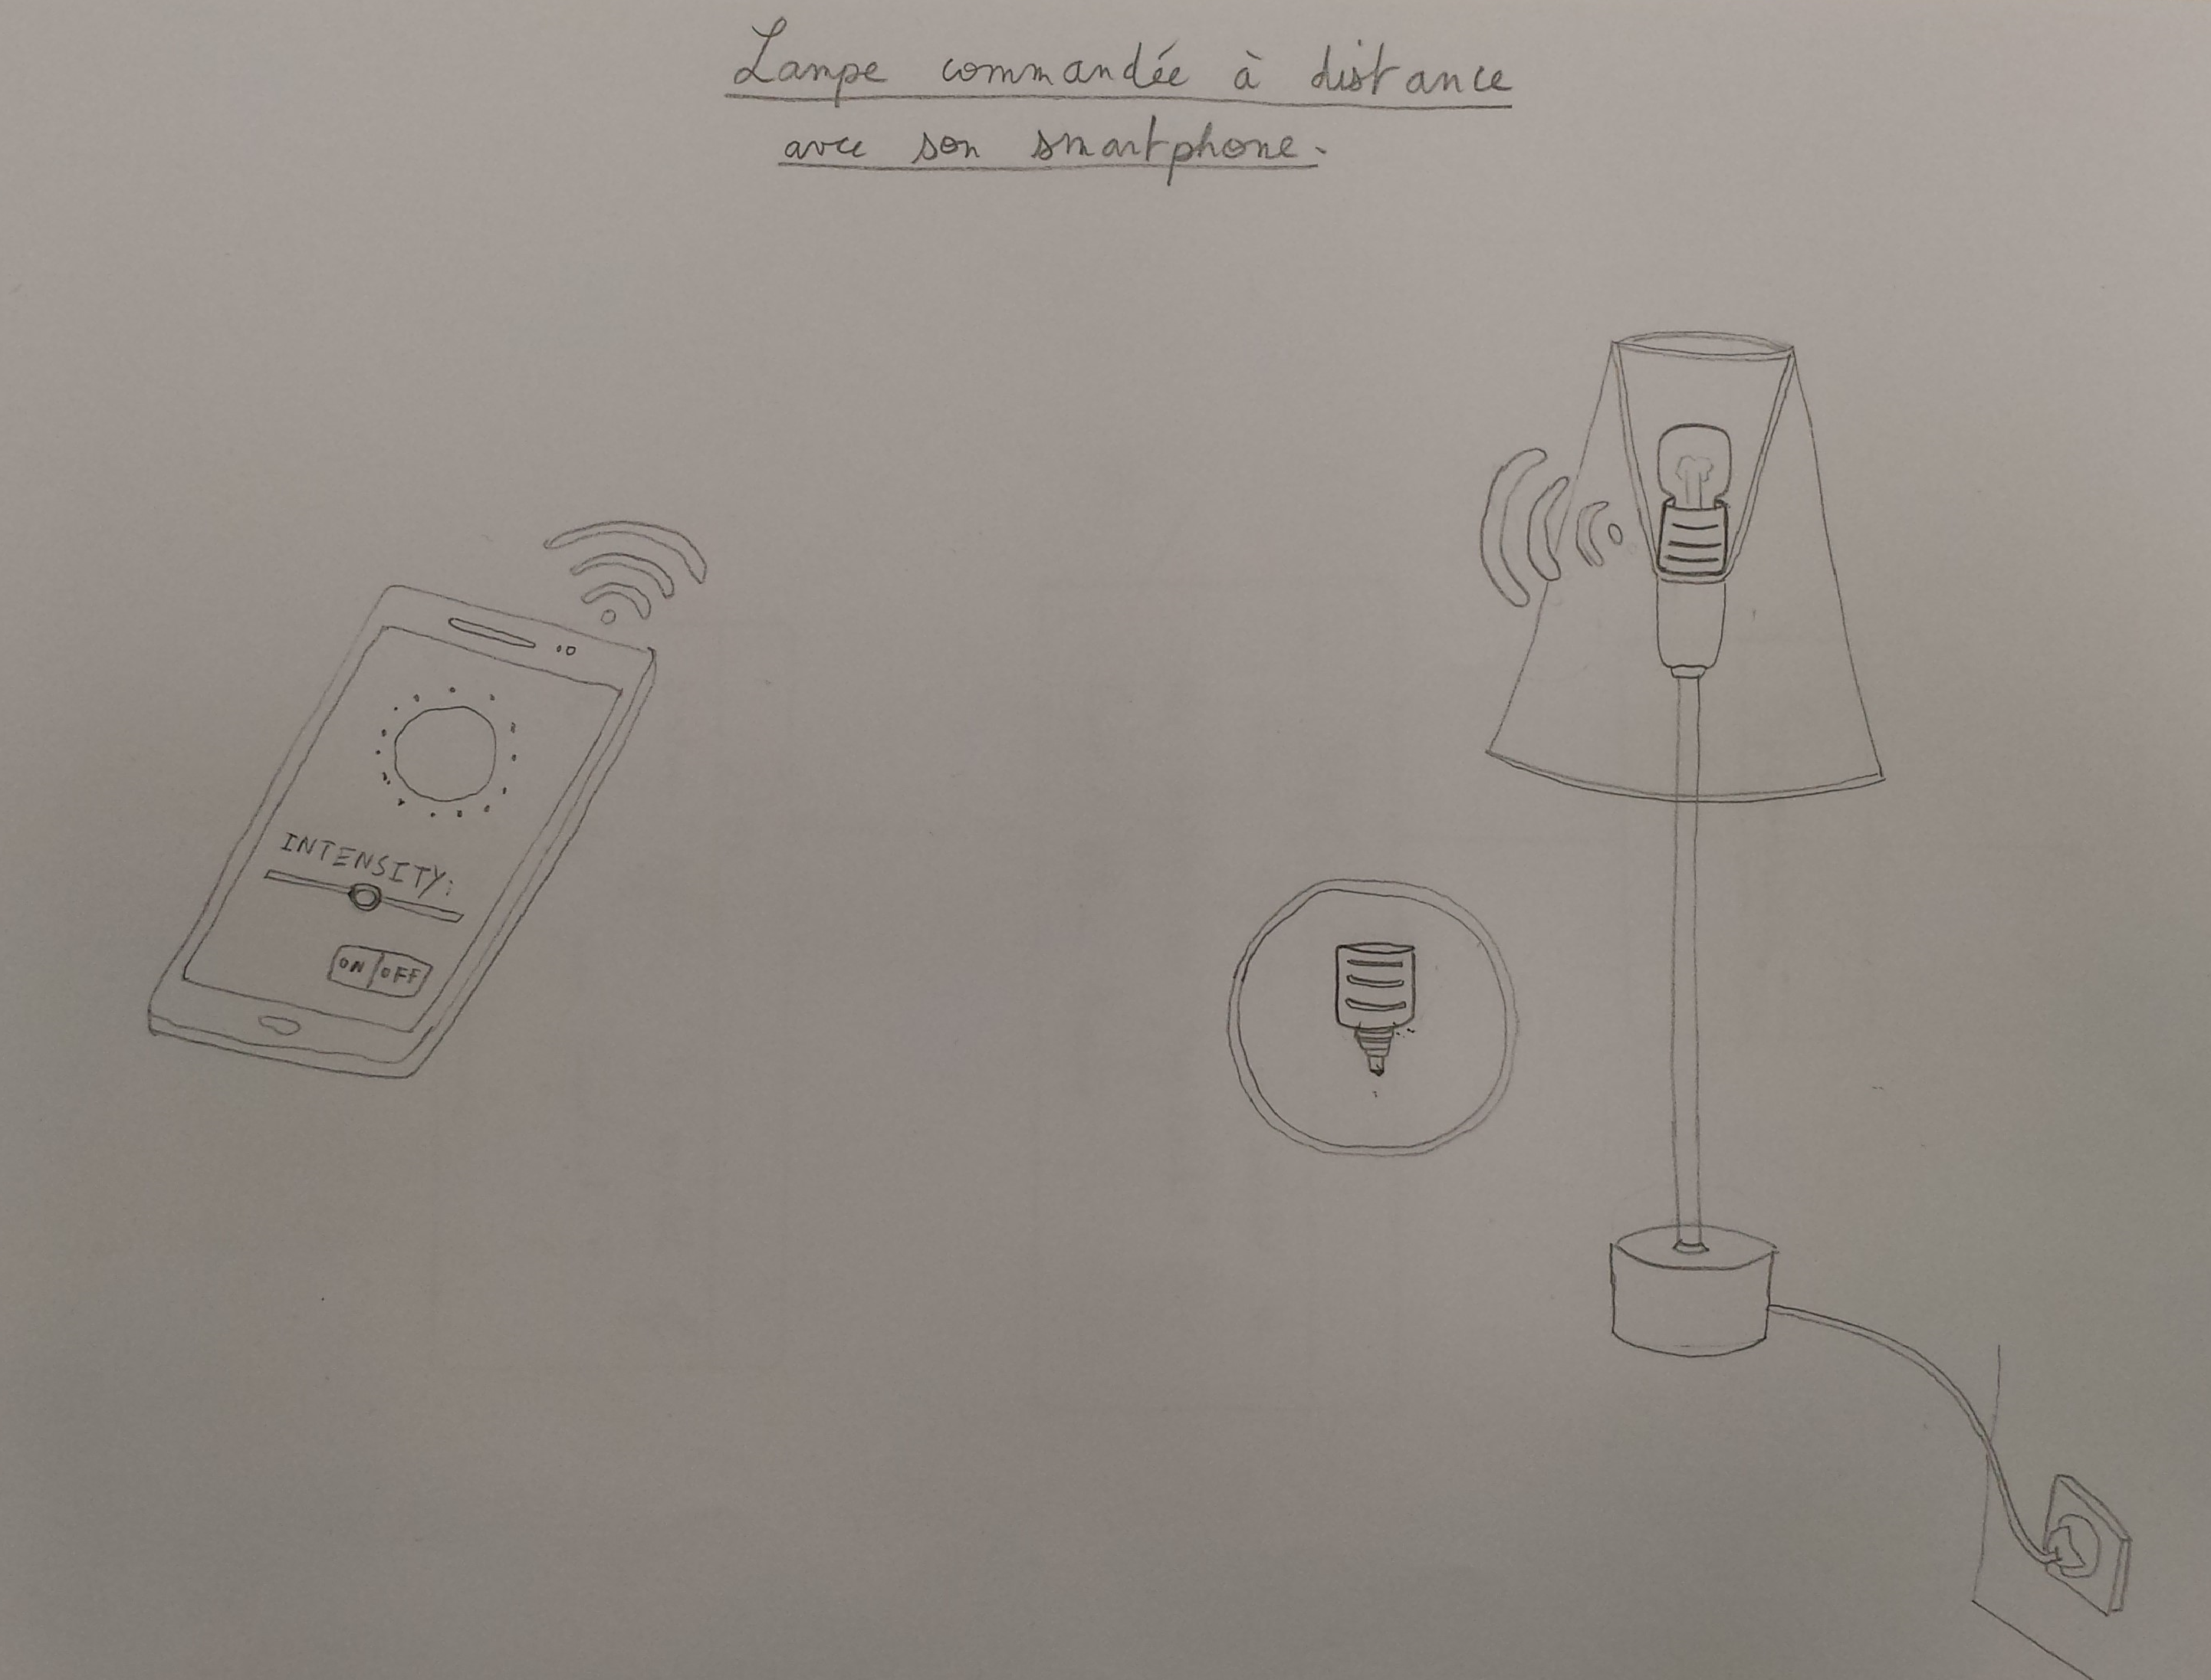 Lampe commandée à distance
avec son smartphone.
INTENSITY:
ON OFF